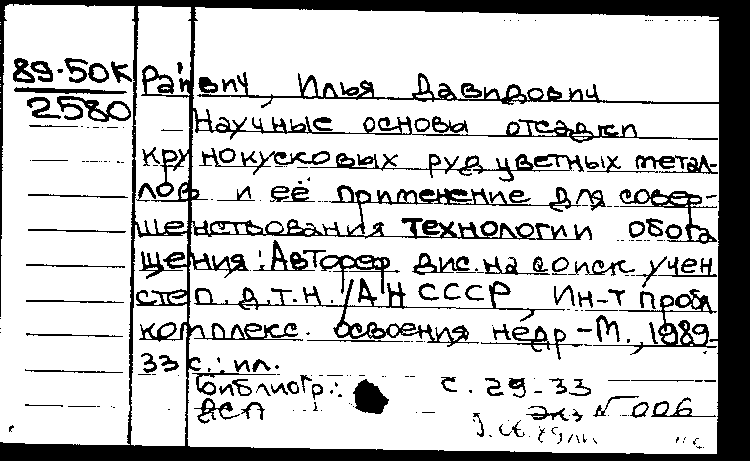 89-50К
2580
Райвич, Илья Давидович
Научные основы отсадки
крупнокусковых руд цветных метал-
лов и её применение для совер-
шенствования технологии обога
щения: Автореф. дис. на соиск. учен
степ. д.т.н. /АН СССР, Ин-т пробл
комплекс. освоения недр -М., 1989-
33 с.: ил.
Библиогр.: с. 29-33
ДСП экз № 006